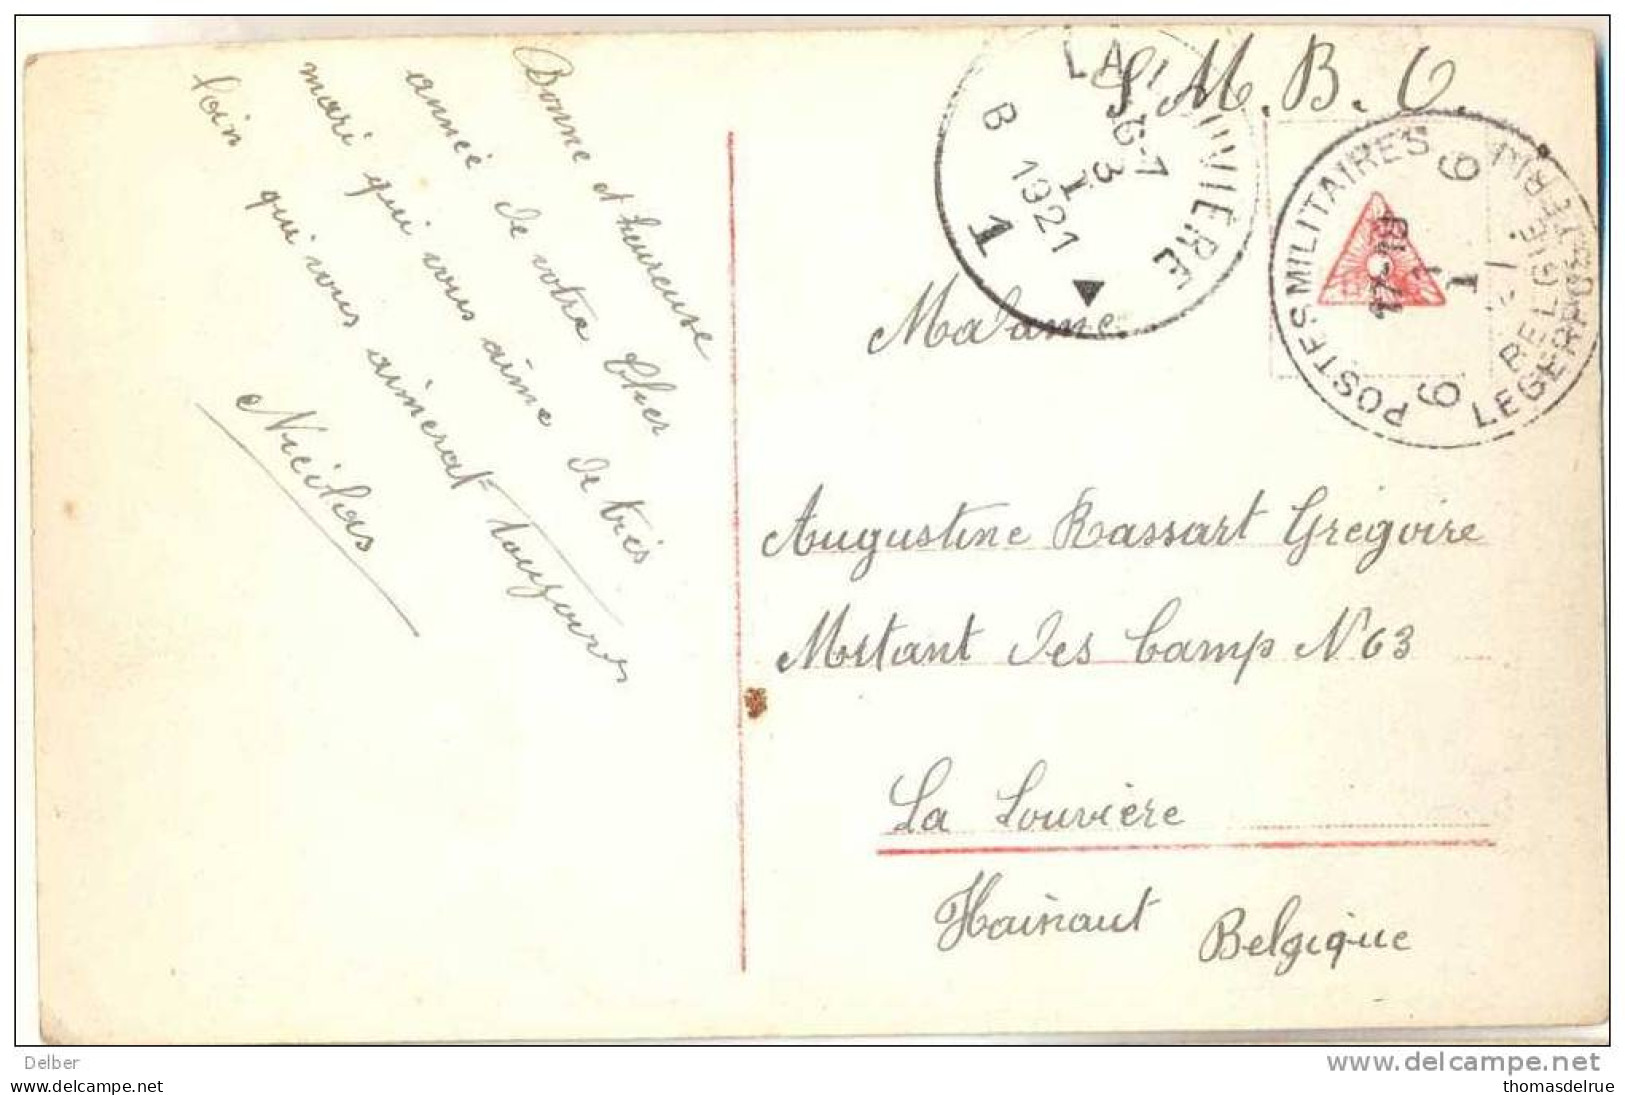 Bonne et heureuse
année de votre Cher
mari qui vous aime de très
loin qui vous aimerat toujours
Nicilas
S. M. B. C.
LA LOUVIERE
B
6-7
3
I
1921
1
POSTES MILITAIRES
BELGIE
LEGERPOSTERIJ
17-18
1
21
9
9
Madame
Augustine Rassart Grégoire
Mstant des Camp N° 63
La Louvière
Hainaut Belgique
Delber
www.delcampe.net
thomasdelrue